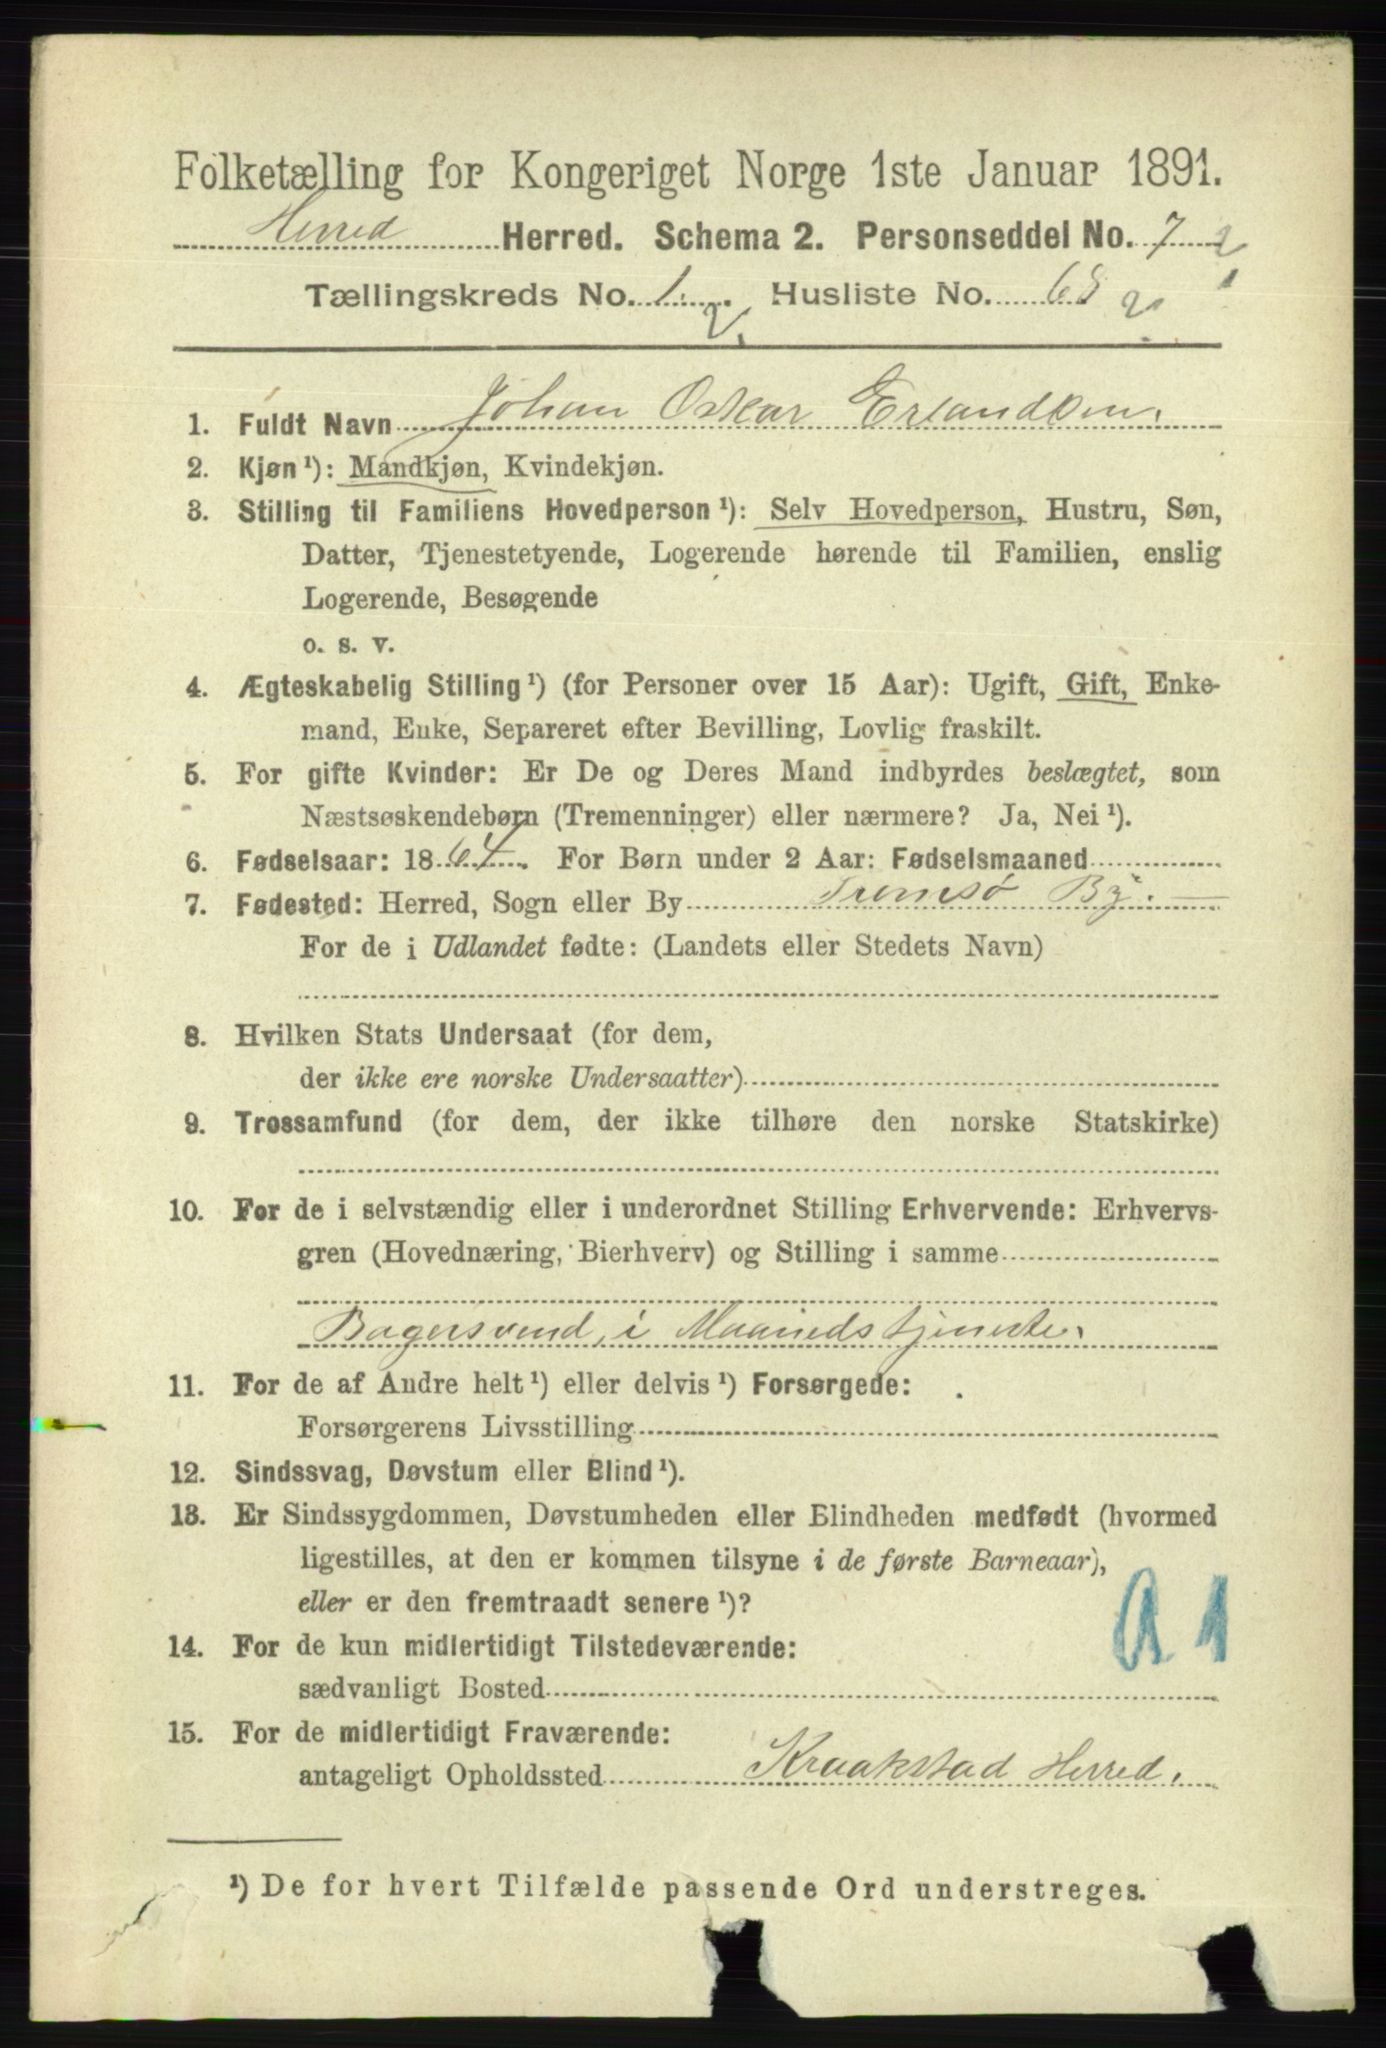 Folketælling for Kongeriget Norge 1ste Januar 1891.
Herred Herred. Schema 2. Personseddel No. 7 2
Tællingskreds No. 1. 2. Husliste No. 68 2
1. Fuldt Navn Johan Oskar Erlandsen.
2. Kjøn¹): Mandkjøn, Kvindekjøn.
3. Stilling til Familiens Hovedperson¹): Selv Hovedperson, Hustru, Søn,
Datter, Tjenestetyende, Logerende hørende til Familien, enslig
Logerende, Besøgende
o. s. v.
4. Ægteskabelig Stilling¹) (for Personer over 15 Aar): Ugift, Gift, Enke-
mand, Enke, Separeret efter Bevilling, Lovlig fraskilt.
5. For gifte Kvinder: Er De og Deres Mand indbyrdes beslægtet, som
Næstsøskendebørn (Tremenninger) eller nærmere? Ja, Nei¹).
6. Fødselsaar: 1864. For Børn under 2 Aar: Fødselsmaaned
7. Fødested: Herred, Sogn eller By Tromsø By.
For de i Udlandet fødte: (Landets eller Stedets Navn)
8. Hvilken Stats Undersaat (for dem,
der ikke ere norske Undersaatter)
9. Trossamfund (for dem, der ikke tilhøre den norske Statskirke)
10. For de i selvstændig eller i underordnet Stilling Erhvervende: Erhvervs-
gren (Hovednæring, Bierhverv) og Stilling i samme
Bagersvend, i Maanedstjeneste.
11. For de af Andre helt¹) eller delvis¹) Forsørgede:
Forsørgerens Livsstilling
12. Sindssvag, Døvstum eller Blind¹).
13. Er Sindssygdommen, Døvstumheden eller Blindheden medfødt (hvormed
ligestilles, at den er kommen tilsyne i de første Barneaar),
eller er den fremtraadt senere¹)?
a 1
14. For de kun midlertidigt Tilstedeværende:
sædvanligt Bosted
15. For de midlertidigt Fraværende:
antageligt Opholdssted Kraakstad Herred.
¹) De for hvert Tilfælde passende Ord understreges.